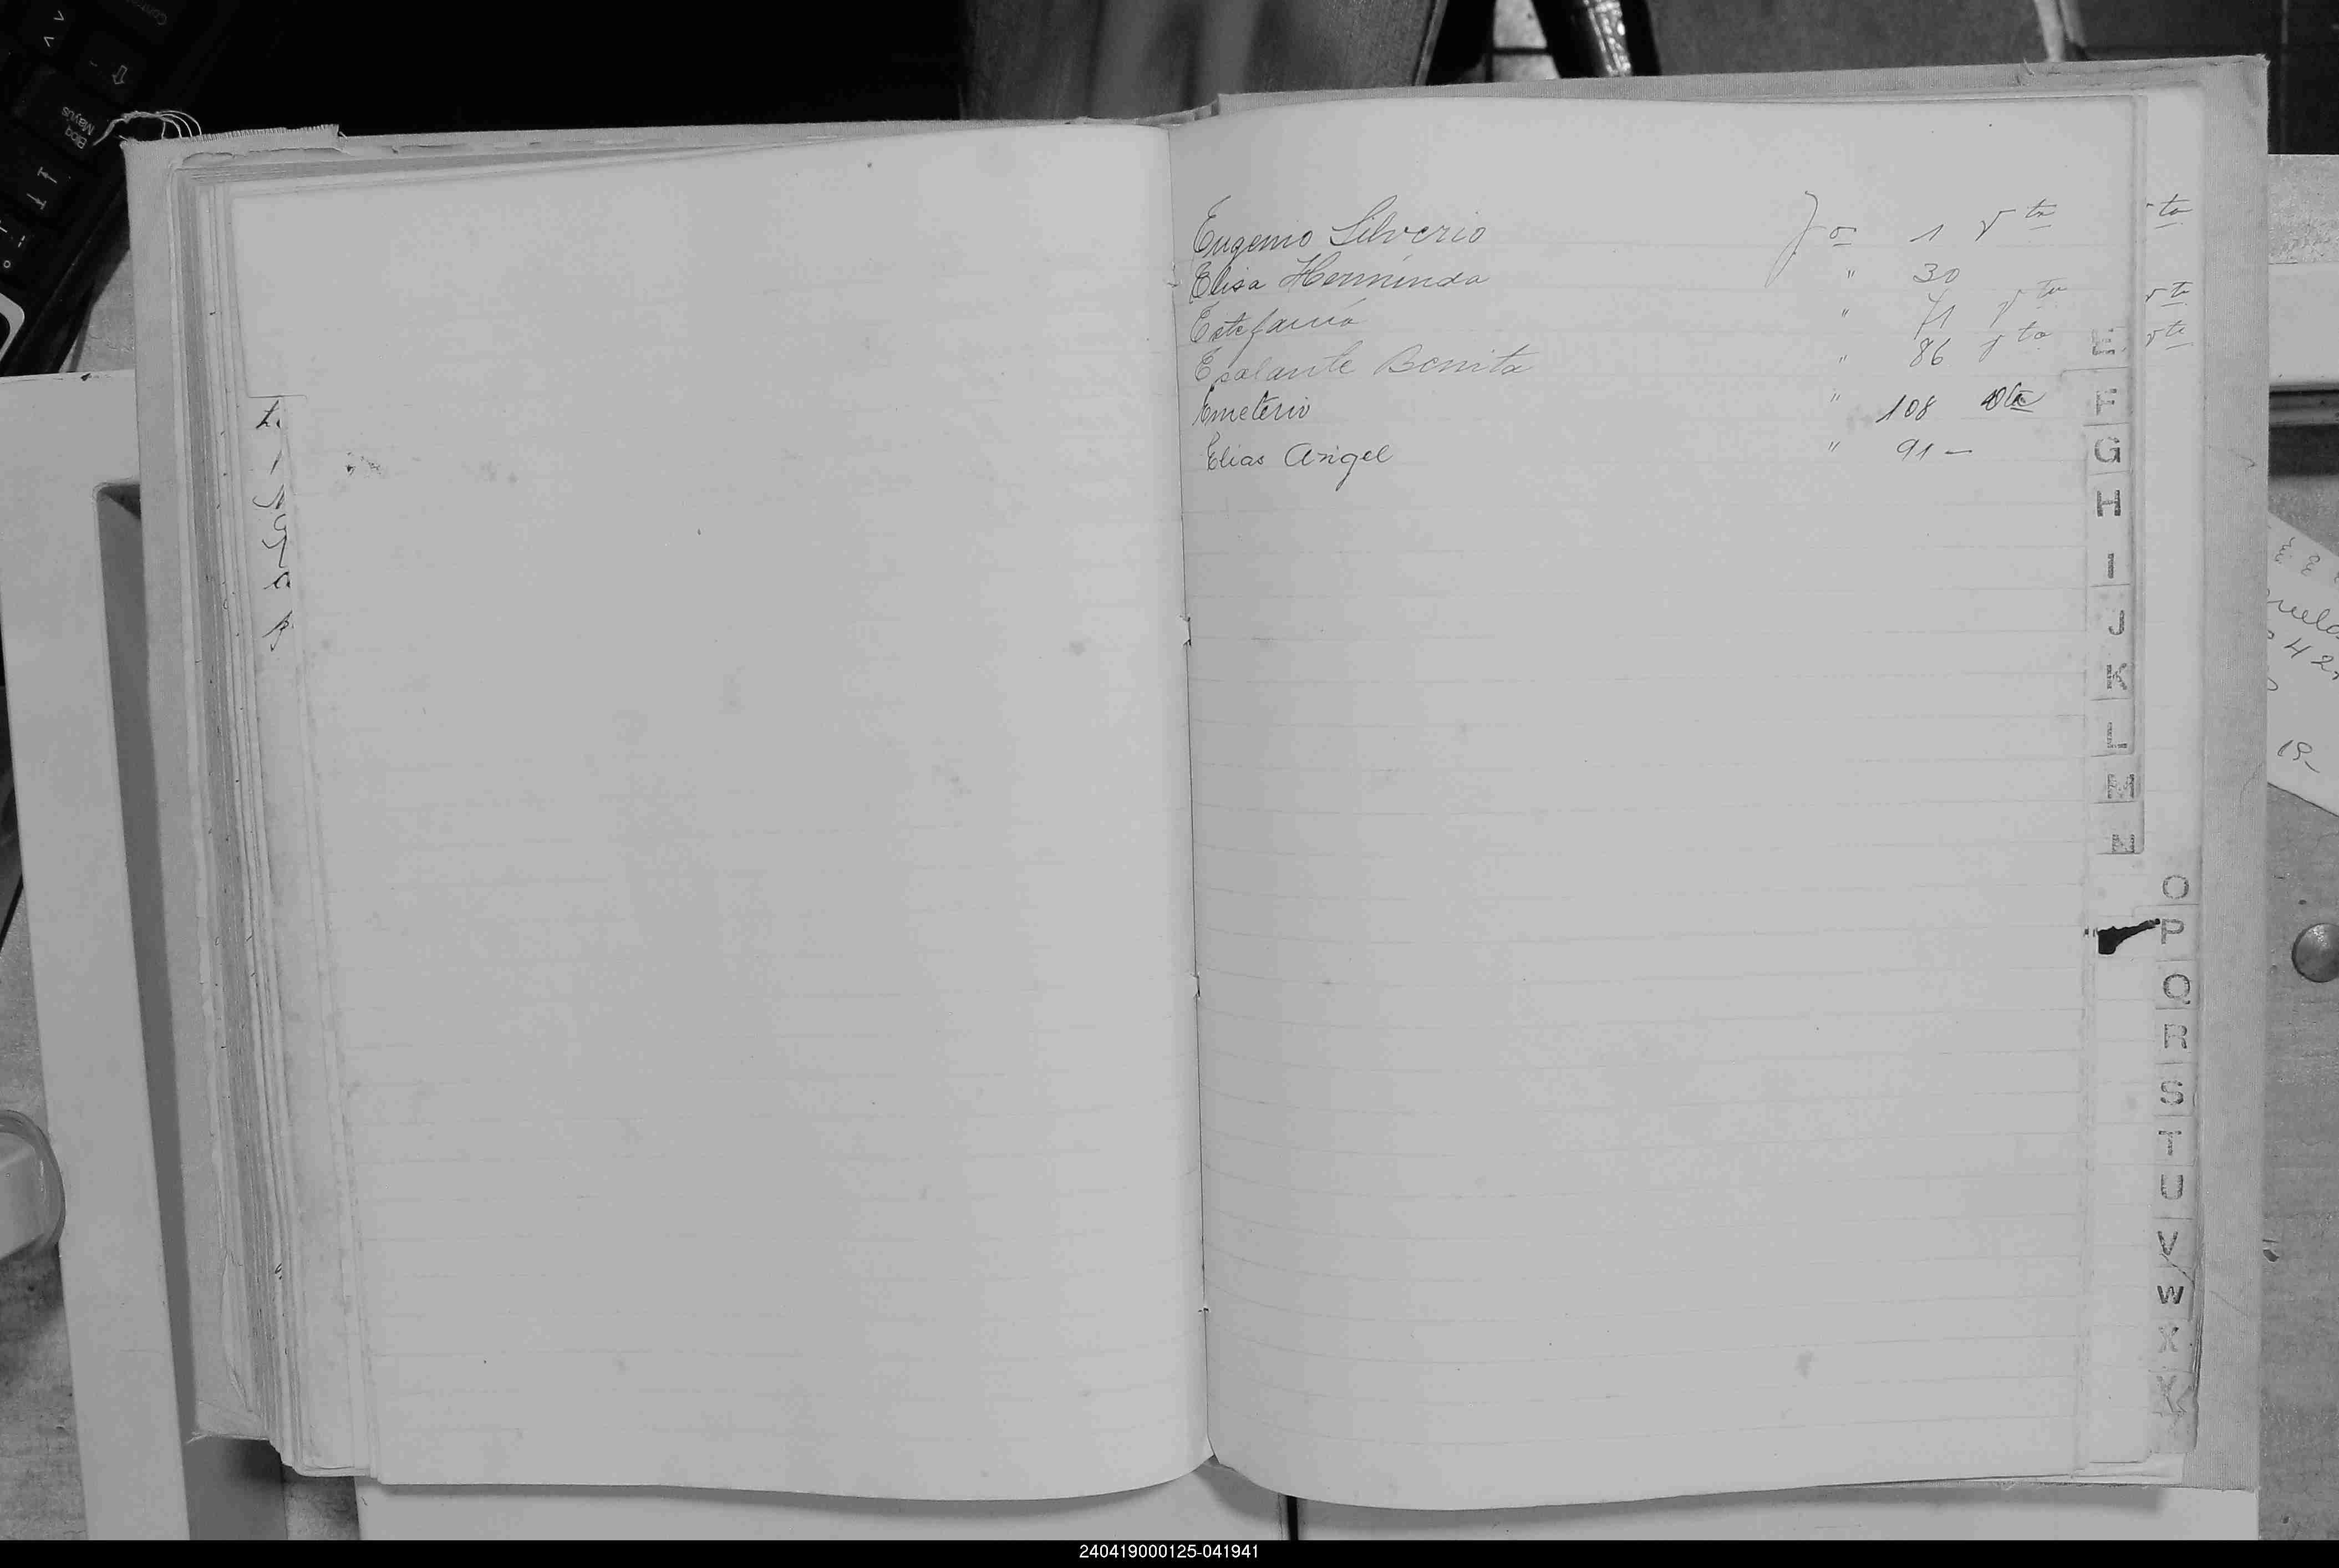 Eugenio Silverio fo 1 vta
Elisa Herminda " 30
Estefania " 71 vta
Escalante Benita " 86 vta
Emeterio " 108 vta
Elias Angel " 91 -
ta
vta
vta
E
F
G
H
I
J
K
L
M
N
O
P
Q
R
S
T
U
V
W
X
Y
19-
Bloq
Mayus
240419000125-041941